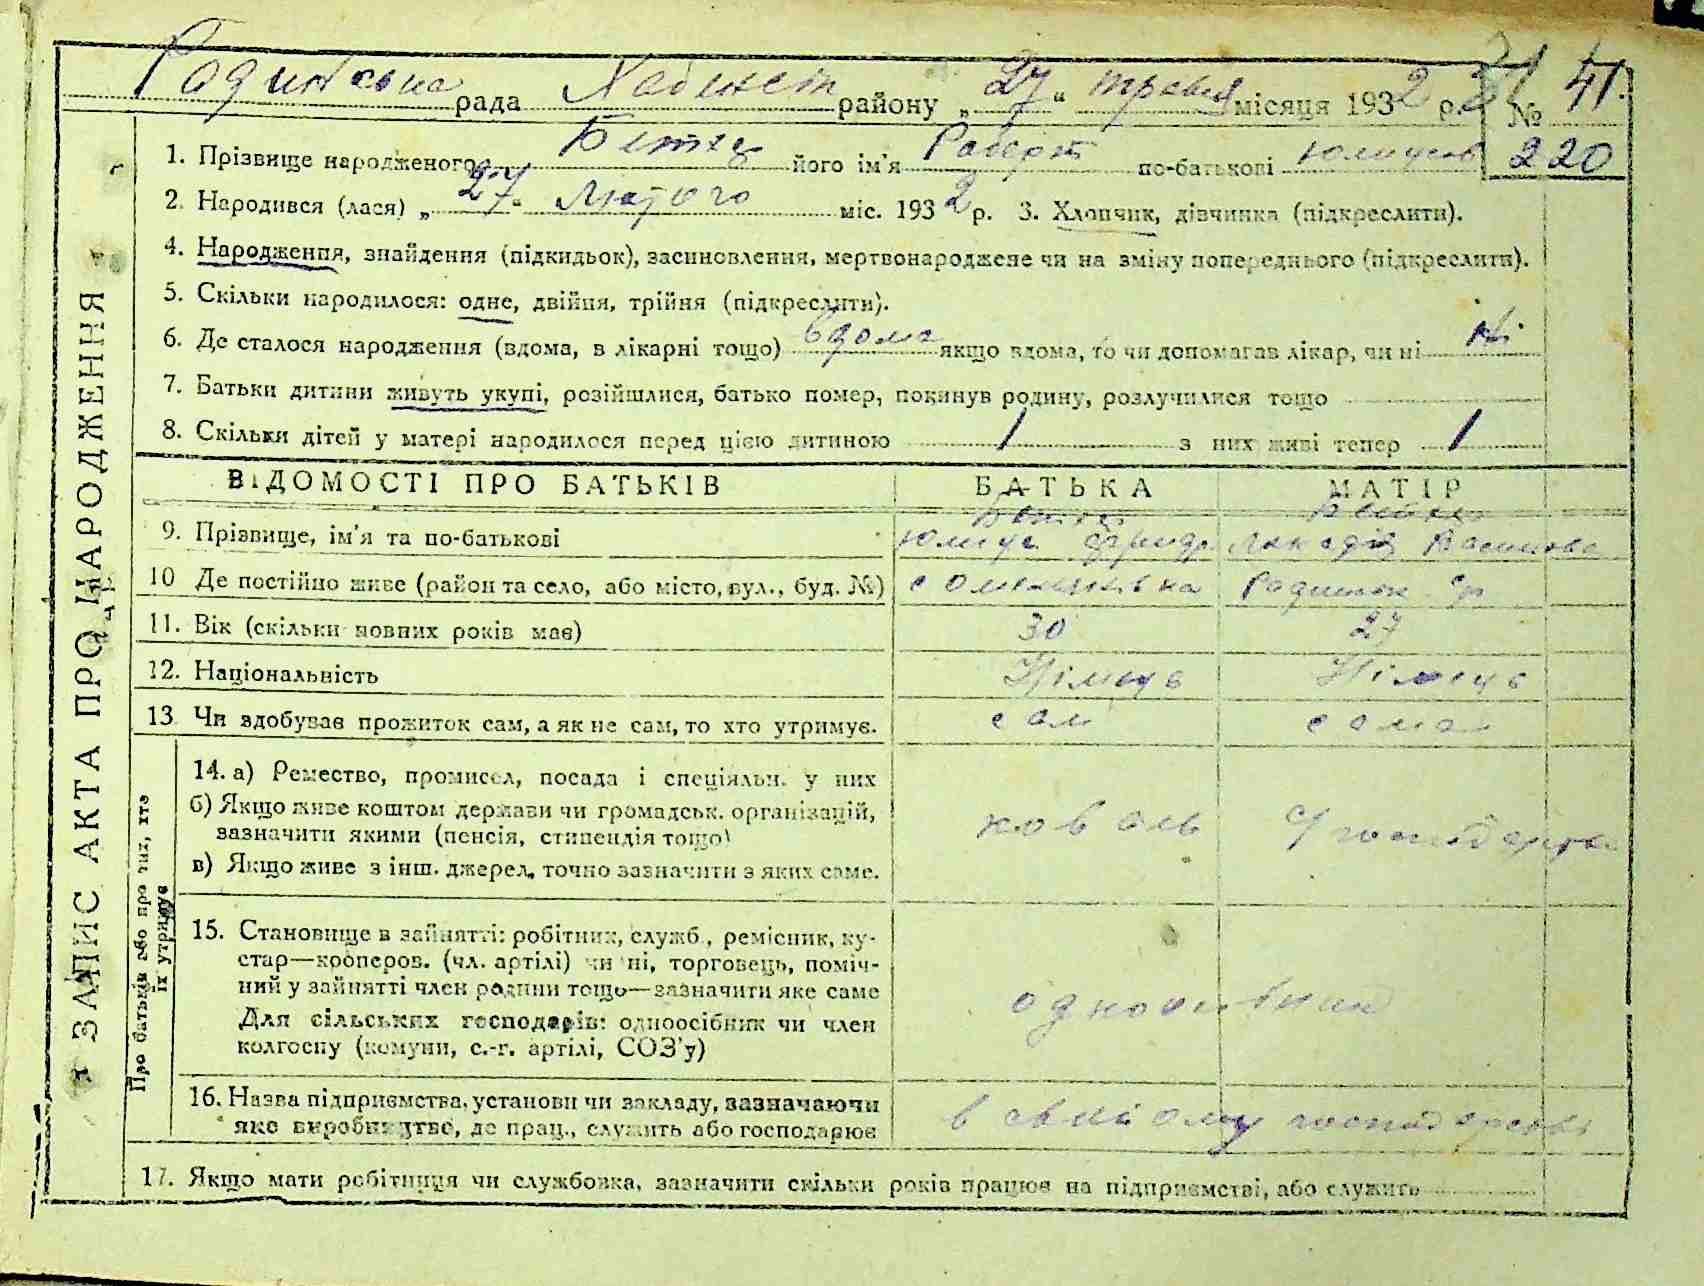 рада району „27“ травня місяця 1932 р. № 41.
1. Прізвище народженого його ім'я Роберт по-батькові 220
2. Народився (лася) „27“ Лютого міс. 1932 р. 3. Хлопчик, дівчинка (підкреслити).
4. Народження, знайдення (підкидьок), засиновлення, мертвонароджене чи на зміну попереднього (підкреслити).
5. Скільки народилося: одне, двійня, трійня (підкреслити).
6. Де сталося народження (вдома, в лікарні тощо) вдома якщо вдома, то чи допомагав лікар, чи ні Ні
7. Батьки дитини живуть укупі, розійшлися, батько помер, покинув родину, розлучилися тощо
8. Скільки дітей у матері народилося перед цією дитиною 1 з них живі тепер 1
ЗАПИС АКТА ПРО НАРОДЖЕННЯ
ВІДОМОСТІ ПРО БАТЬКІВ БАТЬКА МАТІР
9. Прізвище, ім'я та по-батькові
10 Де постійно живе (район та село, або місто, вул., буд. №)
11. Вік (скільки повних років має) 30 27
12. Національність Німець Німець
13. Чи здобував прожиток сам, а як не сам, то хто утримує. сам сама
Про батьків або про тих, хто їх утримує
14. а) Ремество, промисел, посада і спеціяльн. у них
б) Якщо живе коштом держави чи громадськ. організацій,
зазначити якими (пенсія, стипендія тощо)
коваль
в) Якщо живе з інш. джерел, точно зазначити з яких саме.
15. Становище в зайнятті: робітник, служб., ремісник, ку-
стар—кооперов. (чл. артілі) чи ні, торговець, поміч-
ний у зайнятті член родини тощо—зазначити яке саме
одноосібник
Для сільських господарів: одноосібник чи член
колгоспу (комуни, с.-г. артілі, СОЗ'у)
16. Назва підприємства, установи чи закладу, зазначаючи
яке виробництво, де прац., служить або господарює
в своєму господарстві
17. Якщо мати робітниця чи службовка, зазначити скільки років працює на підприємстві, або служить